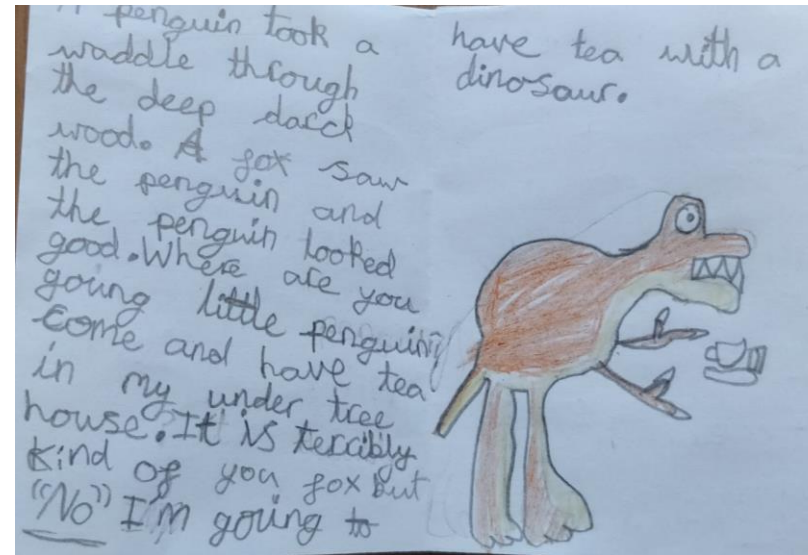 A penguin took a
waddle through
the deep darck
wood. A fox saw
the penguin and
the penguin looked
good. Where are you
going little penguin?
Come and have tea
in my under tree
house. It is terribly
kind of you fox but
"No" I'm going to
have tea with a
dinosaur.